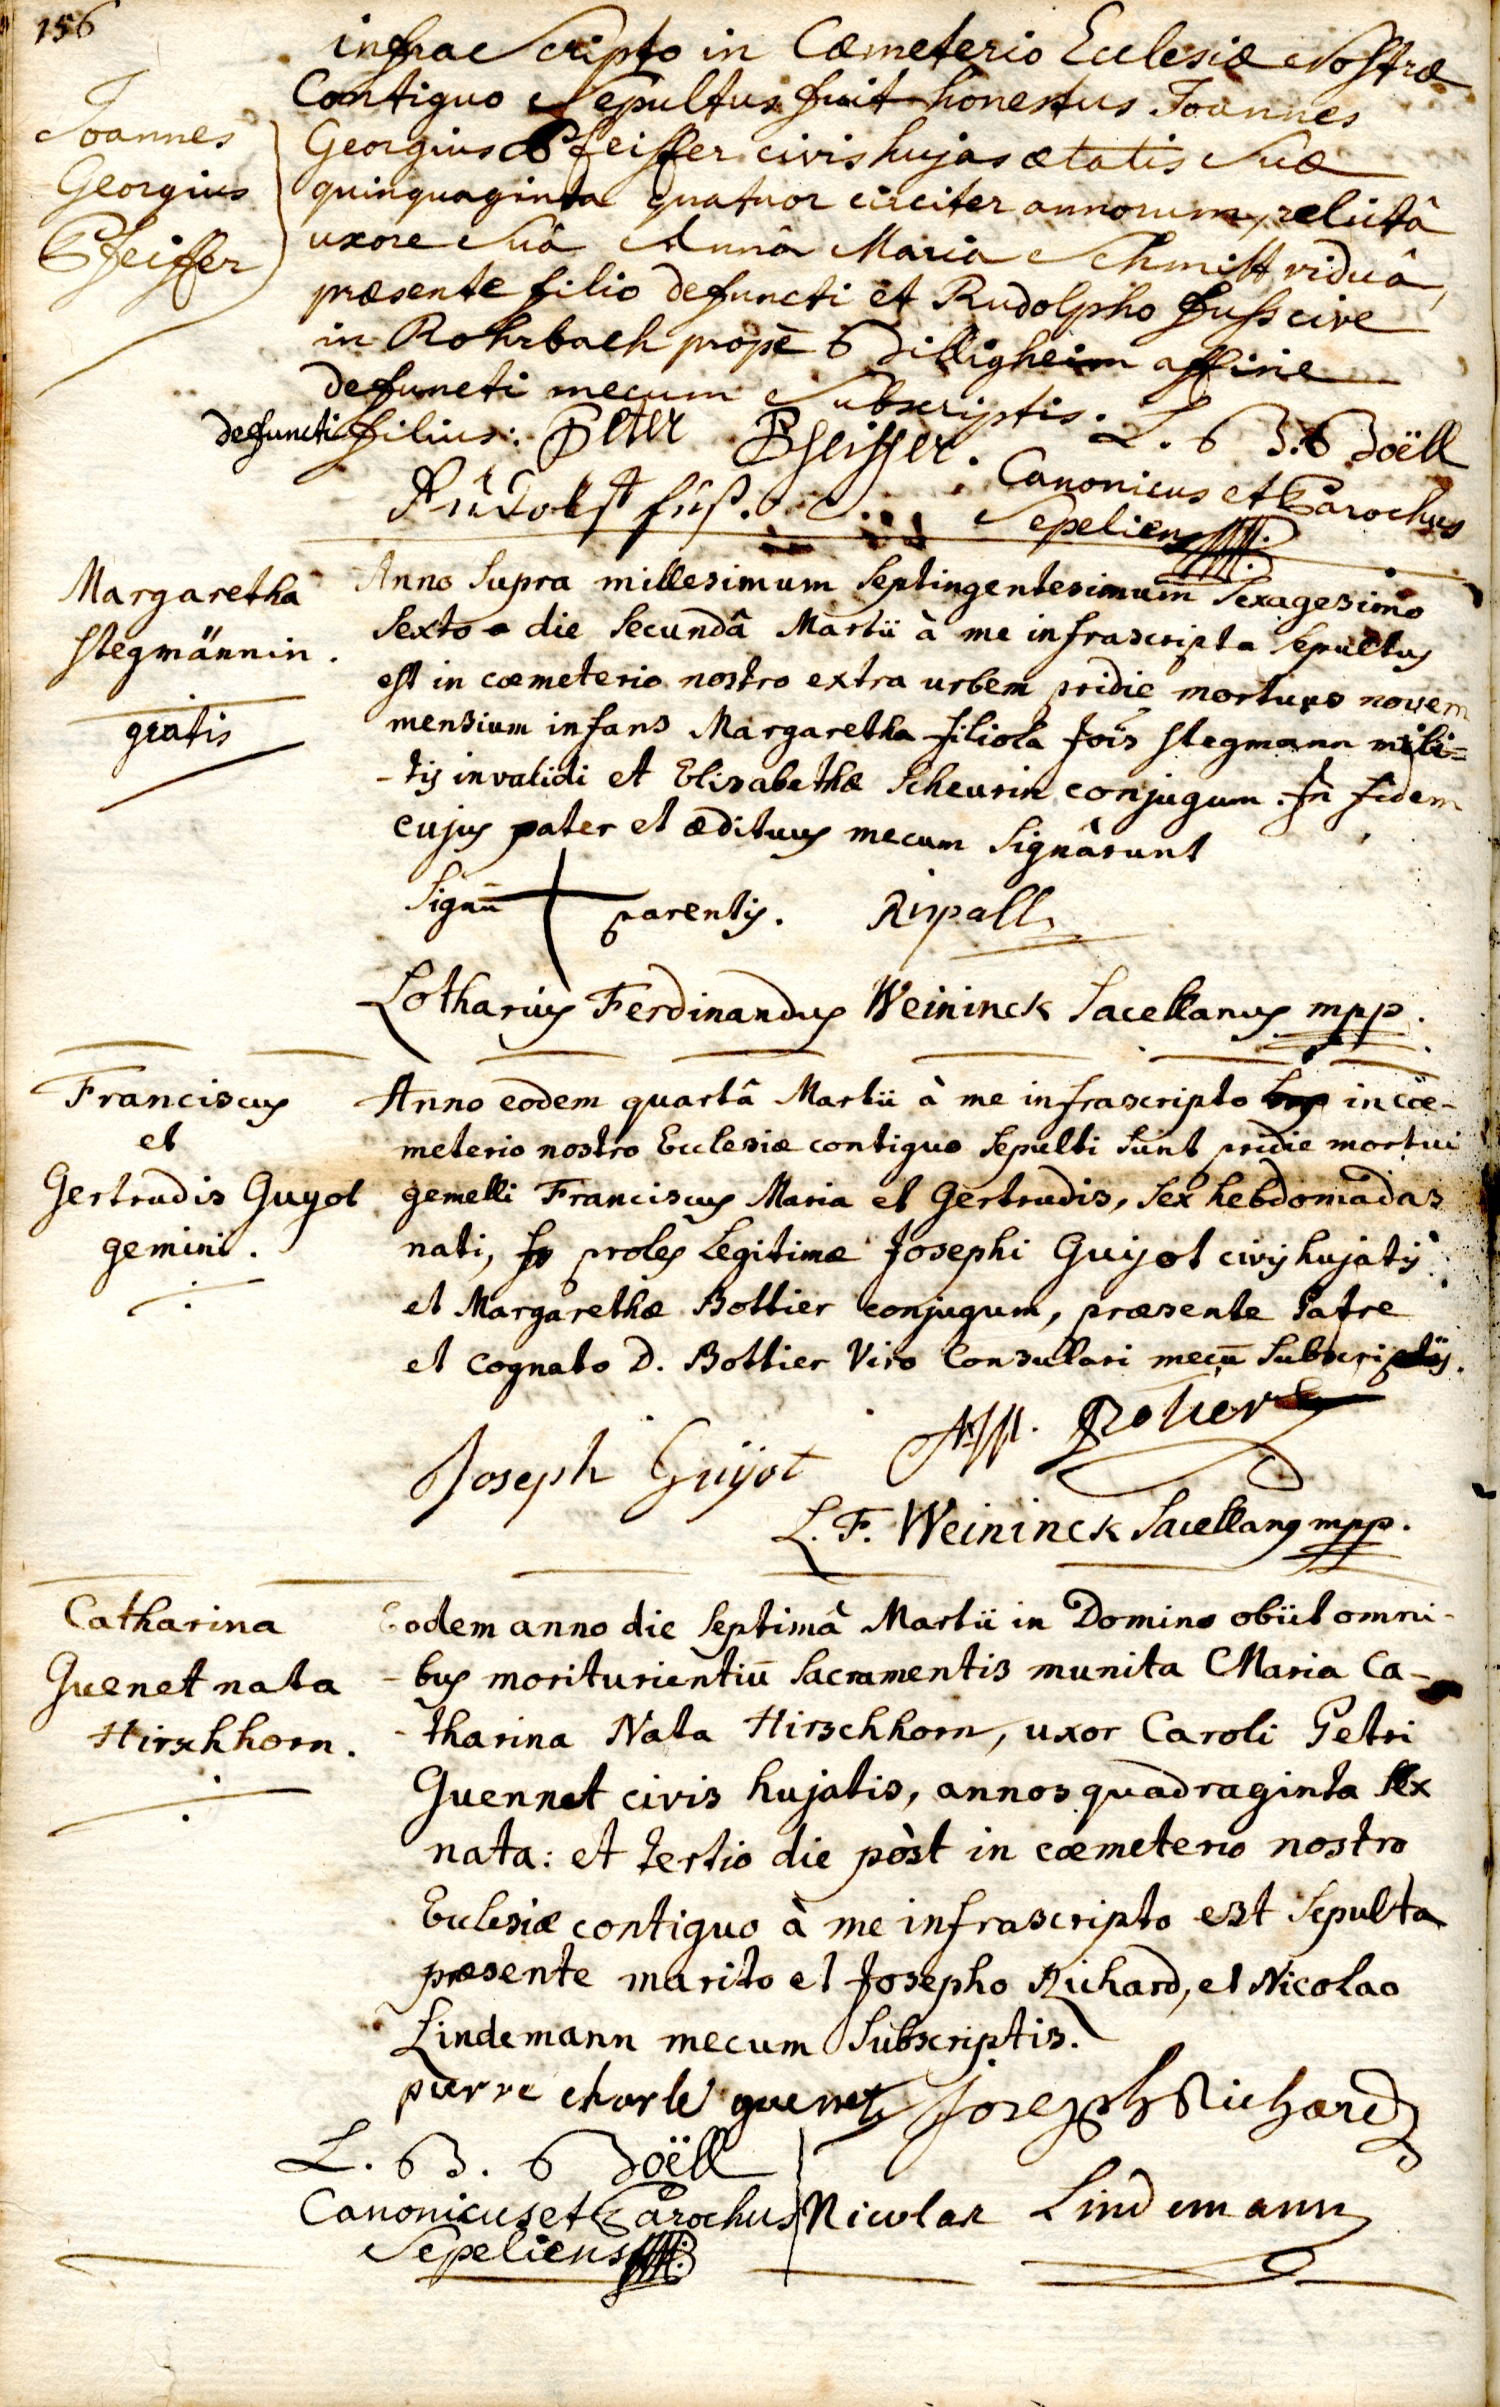 156
infrascripto in Cœmeterio Ecclesiæ Nostræ
Contiguo Sepultus fuit honestus Joannes
Joannes
Georgius
Pfeiffer
Georgius Pfeiffer civis hujas ætatis Suæ
quinquaginta quatuor circiter annorum, relictâ
uxore Suâ Annâ Maria Schmitt viduâ,
præsente filio defuncti et Rudolpho fuss cive
in Rohrbach propè Billigheim affine
defuncti mecum Subscriptis.
defuncti filius: Peter Pfeiffer.
L. B. Boëll
Canonicus et Parochus
Sepeliens
Rudolff fuß.
Margaretha
Stegmännin.
gratis
Anno Supra millesimum Septingentesimum Sexagesimo
Sexto die Secundâ Martii à me infrascripta Sepultus
est in cœmeterio nostro extra urbem pridie mortuus novem
mensium infans Margaretha filiola Jois Stegmann mili=
-tis invalidi et Elisabethæ Scheurin conjugum. In fidem
cujus pater et ædituus mecum Signârunt
Signū + parentis. Rispall
Lotharius Ferdinandus Weininck Sacellanus mpp.
Franciscus
et
Gertrudis Guyot
gemini.
Anno eodem quartâ Martii à me infrascripto in cœ-
meterio nostro Ecclesiæ contiguo Sepulti Sunt pridie mortui
gemelli Franciscus Maria et Gertrudis, Sex hebdomadas
nati, proles Legitimæ Josephi Guijot civis hujatis
et Margarethæ Bottier conjugum, præsente Patre
et cognato D. Bottier Viro Consulari mecū Subscriptis.
Joseph Guijot
Botier
L. F. Weininck Sacellanus mpp.
Catharina
Guenet nata
Hirschhorn.
Eodem anno die Septimâ Martii in Domino obiit omni-
-bus moriturientiū Sacramentis munita Maria Ca-
-tharina Nata Hirschhorn, uxor Caroli Petri
Guennet civis hujatis, annos quadraginta Sex
nata: et tertio die pòst in cœmeterio nostro
Ecclesiæ contiguo à me infrascripto est Sepulta
præsente marito et Josepho Richard, et Nicolao
Lindemann mecum Subscriptis.
pierre charle guenet Joseph Richard
L. B. Boëll
Canonicus et Parochus
Sepeliens
Nicolas Lindemann